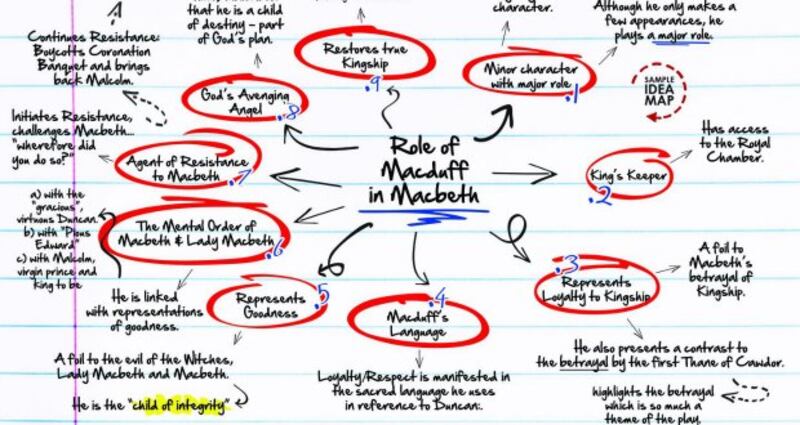 Role of
Macduff
in Macbeth
SAMPLE
IDEA
MAP
Minor character
with major role
.1
character.
Although he only makes a
few appearances, he
plays a major role.
King's Keeper
.2
Has access
to the Royal
Chamber.
.3
Represents
Loyalty to Kingship
A foil to
Macbeth's
betrayal of
Kingship.
He also presents a contrast to
the betrayal by the first Thane of Cawdor.
highlights the betrayal
which is so much a
theme of the play.
.4
Macduff's
Language
Loyalty/Respect is manifested in
the sacred language he uses
in reference to Duncan:.
.5
Represents
Goodness
A foil to the evil of the Witches,
Lady Macbeth and Macbeth.
He is the "child of integrity"
The Mental Order of
Macbeth & Lady Macbeth
.6
He is linked
with representations
of goodness.
a) with the
"gracious",
virtuous Duncan.
b) with "Pious
Edward"
c) with Malcolm,
virgin prince and
King to be
Agent of Resistance
to Macbeth
.7
Initiates Resistance,
challenges Macbeth...
"wherefore did
you do so?"
Continues Resistance:
Boycotts Coronation
Banquet and brings
back Malcolm.
God's Avenging
Angel
.8
that he is a child
of destiny – part
of God's plan.
Restores true
Kingship
.9